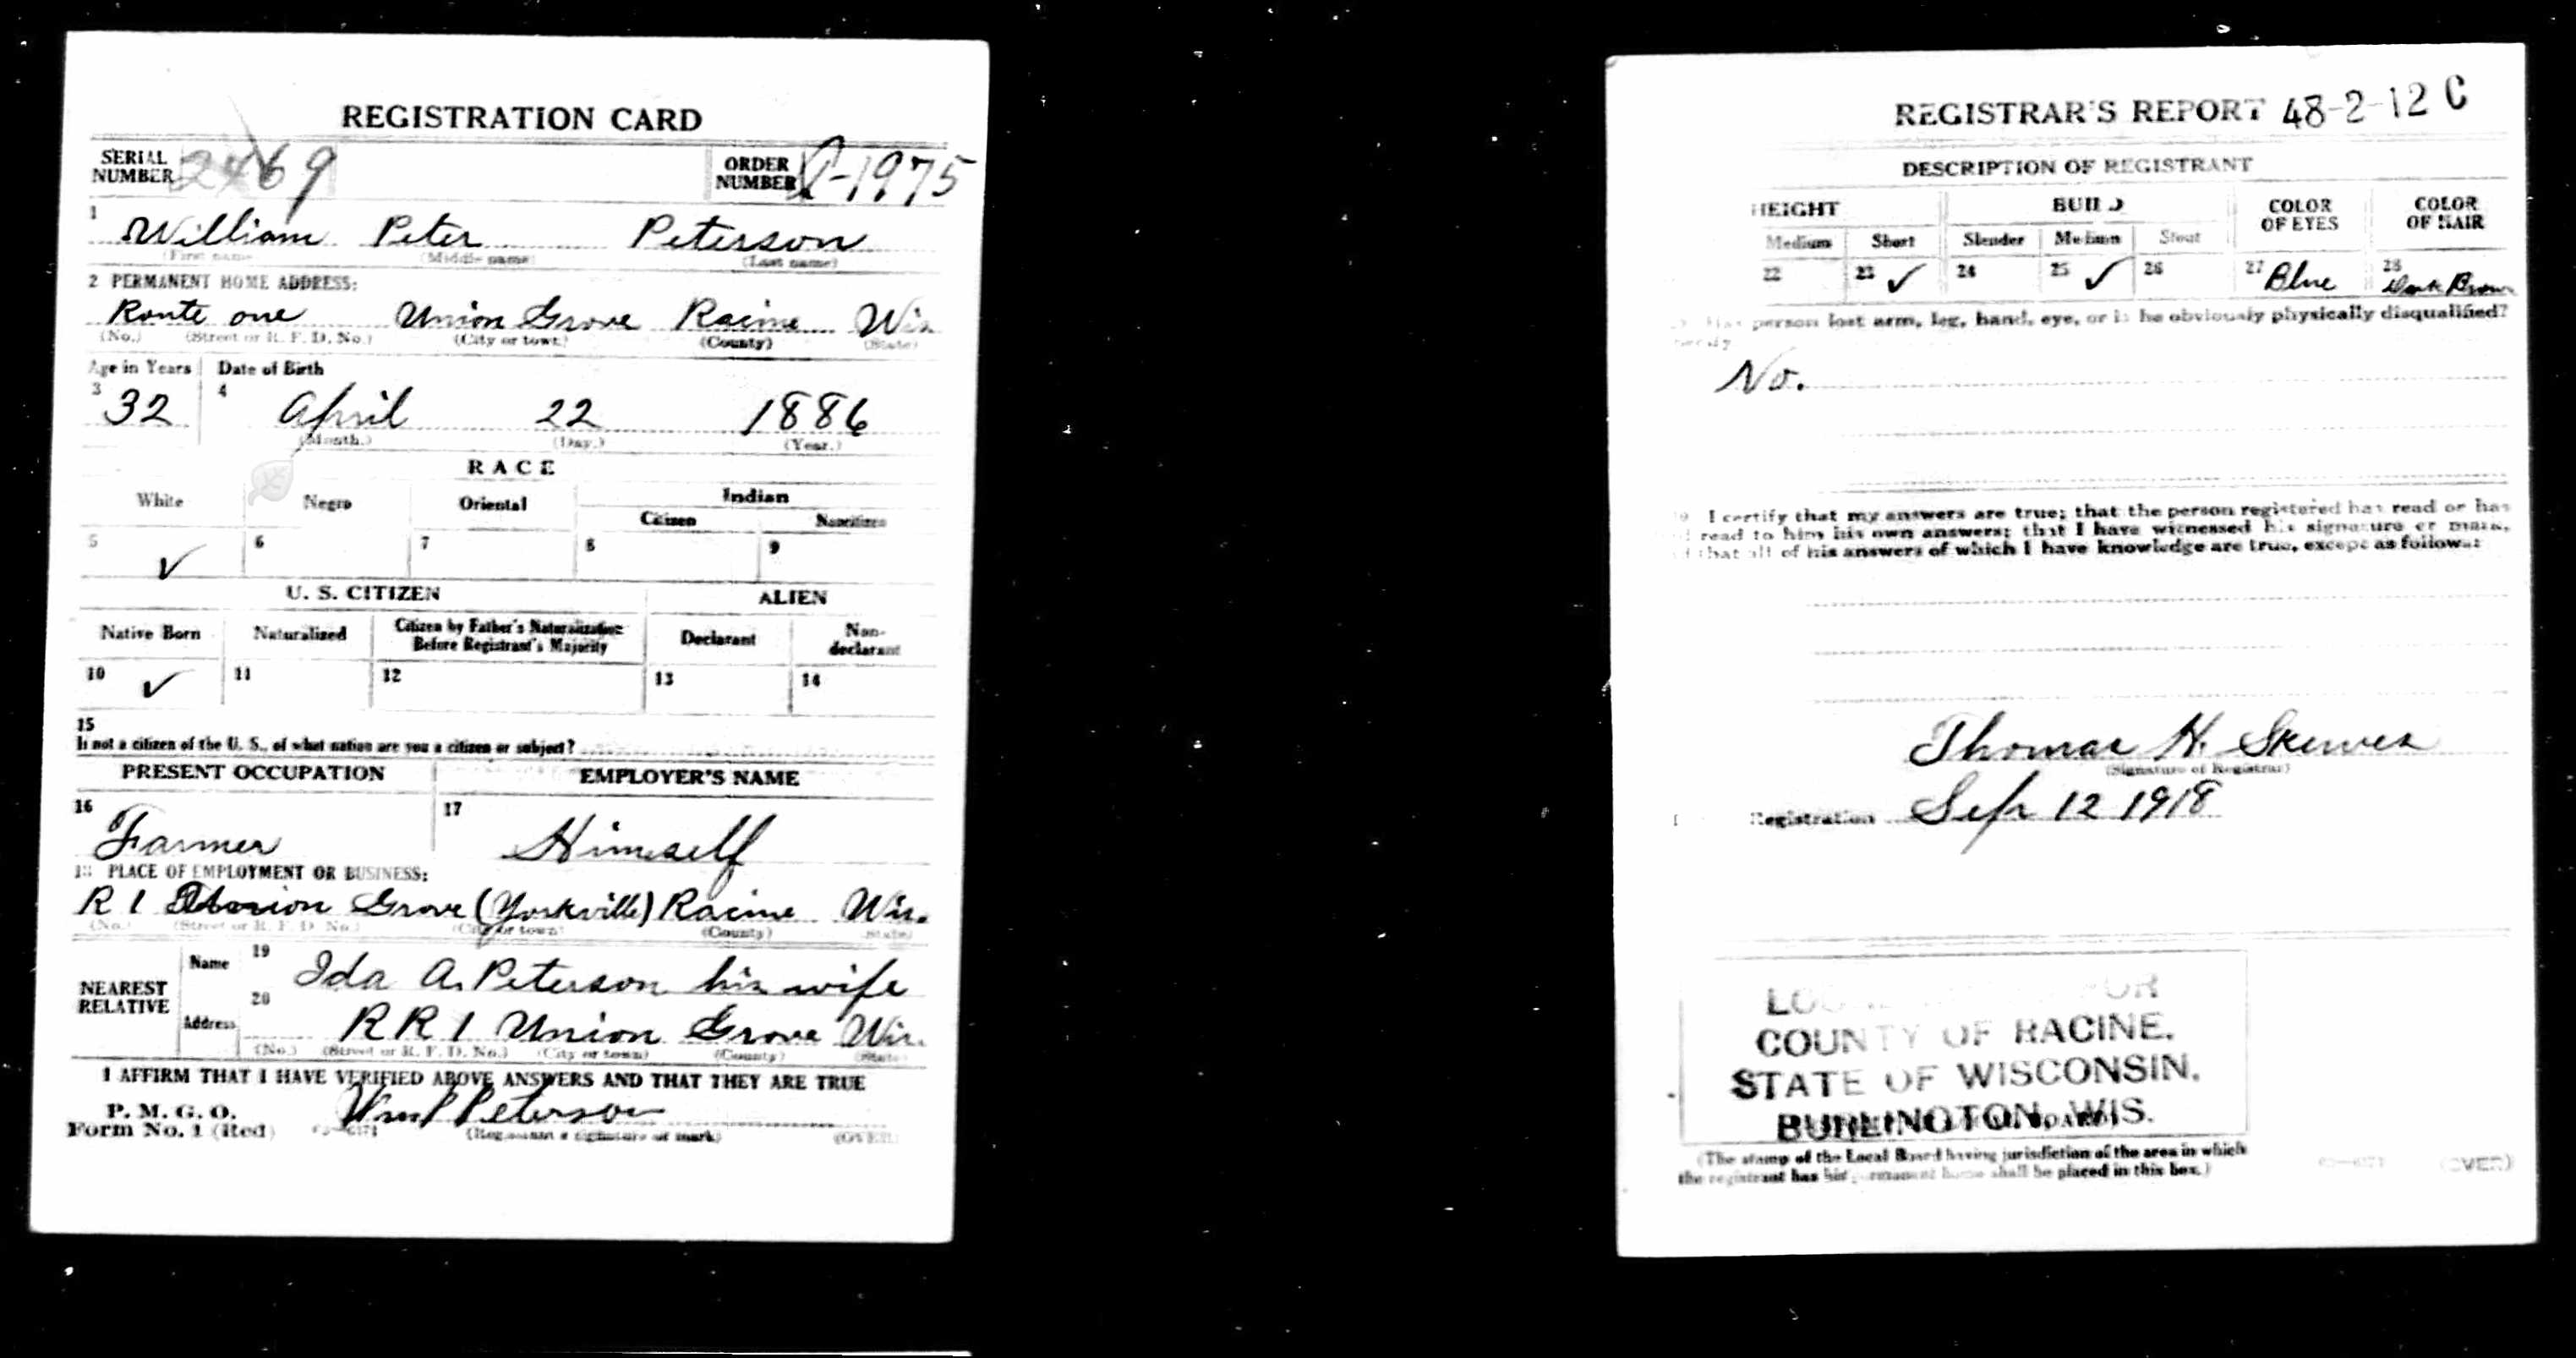 REGISTRATION CARD
SERIAL NUMBER 2469 ORDER NUMBER 1975
1 William Peter Peterson
(First name) (Middle name) (Last name)
2 PERMANENT HOME ADDRESS:
Route one Union Grove Racine Wis
(No.) (Street or R. F. D. No.) (City or town) (County) (State)
Age in Years Date of Birth
3 32 4 April 22 1886
(Month.) (Day.) (Year.)
RACE
White Negro Oriental Indian
Citizen Noncitizen
5 ✓ 6 7 8 9
U. S. CITIZEN ALIEN
Native Born Naturalized Citizen by Father's Naturalization Before Registrant's Majority Declarant Non-declarant
10 ✓ 11 12 13 14
15
If not a citizen of the U. S., of what nation are you a citizen or subject?
PRESENT OCCUPATION EMPLOYER'S NAME
16 Farmer 17 Himself
18 PLACE OF EMPLOYMENT OR BUSINESS:
R 1 Union Grove (Yorkville) Racine Wis.
(No.) (Street or R. F. D. No.) (City or town) (County) (State)
NEAREST RELATIVE Name 19 Ida A. Peterson his wife
Address 20 R R 1 Union Grove Wis.
(No.) (Street or R. F. D. No.) (City or town) (County) (State)
I AFFIRM THAT I HAVE VERIFIED ABOVE ANSWERS AND THAT THEY ARE TRUE
P. M. G. O.
Form No. 1 (Red) Wm P Peterson
(Registrant's signature or mark) (OVER)
REGISTRAR'S REPORT 48-2-12 C
DESCRIPTION OF REGISTRANT
HEIGHT BUILD COLOR OF EYES COLOR OF HAIR
Medium Short Slender Medium Stout
22 23 ✓ 24 25 ✓ 26 27 Blue 28 Dark Brown
Has person lost arm, leg, hand, eye, or is he obviously physically disqualified?
No.
I certify that my answers are true; that the person registered has read or has
read to him his own answers; that I have witnessed his signature or mark,
that all of his answers of which I have knowledge are true, except as follows:
Thomas H. Skewes
(Signature of Registrar)
Registration Sep 12 1918
COUNTY OF RACINE.
STATE OF WISCONSIN,
BURLINGTON, WIS.
(The stamp of the Local Board having jurisdiction of the area in which
the registrant has his permanent home shall be placed in this box.)
(OVER)